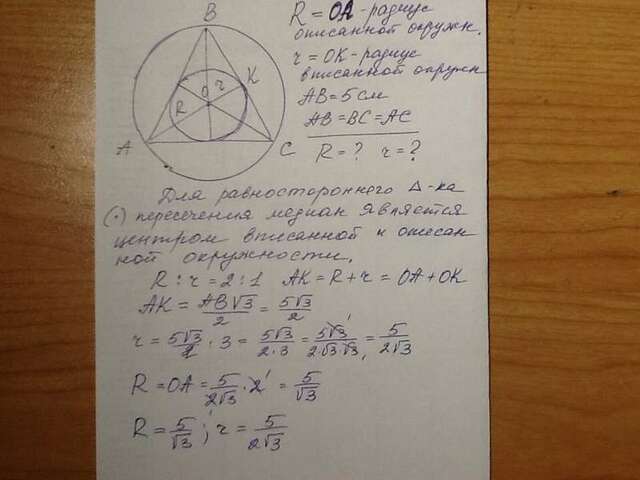 B
O
r
R
K
A
C
R = OA - радиус
описанной окружн.
r = OK - радиус
вписанной окружн
AB = 5 см
AB = BC = AC
R = ? r = ?
Для равностороннего Δ-ка
(·) пересечения медиан является
центром вписанной и описан
ной окружности.
R : r = 2 : 1 AK = R + r = OA + OK
AK = AB√3/2 = 5√3/2
r = 5√3/2 · 3 = 5√3/2·3 = 5√3/2·√3·√3 = 5/2√3
R = OA = 5/2√3 · 2 = 5/√3
R = 5/√3 ; r = 5/2√3